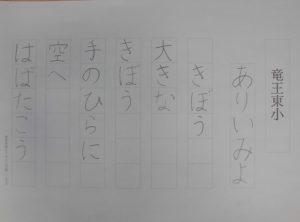 竜王東小
ありいみよ
きぼう
大きな
きぼう
手のひらに
空へ
はばたこう